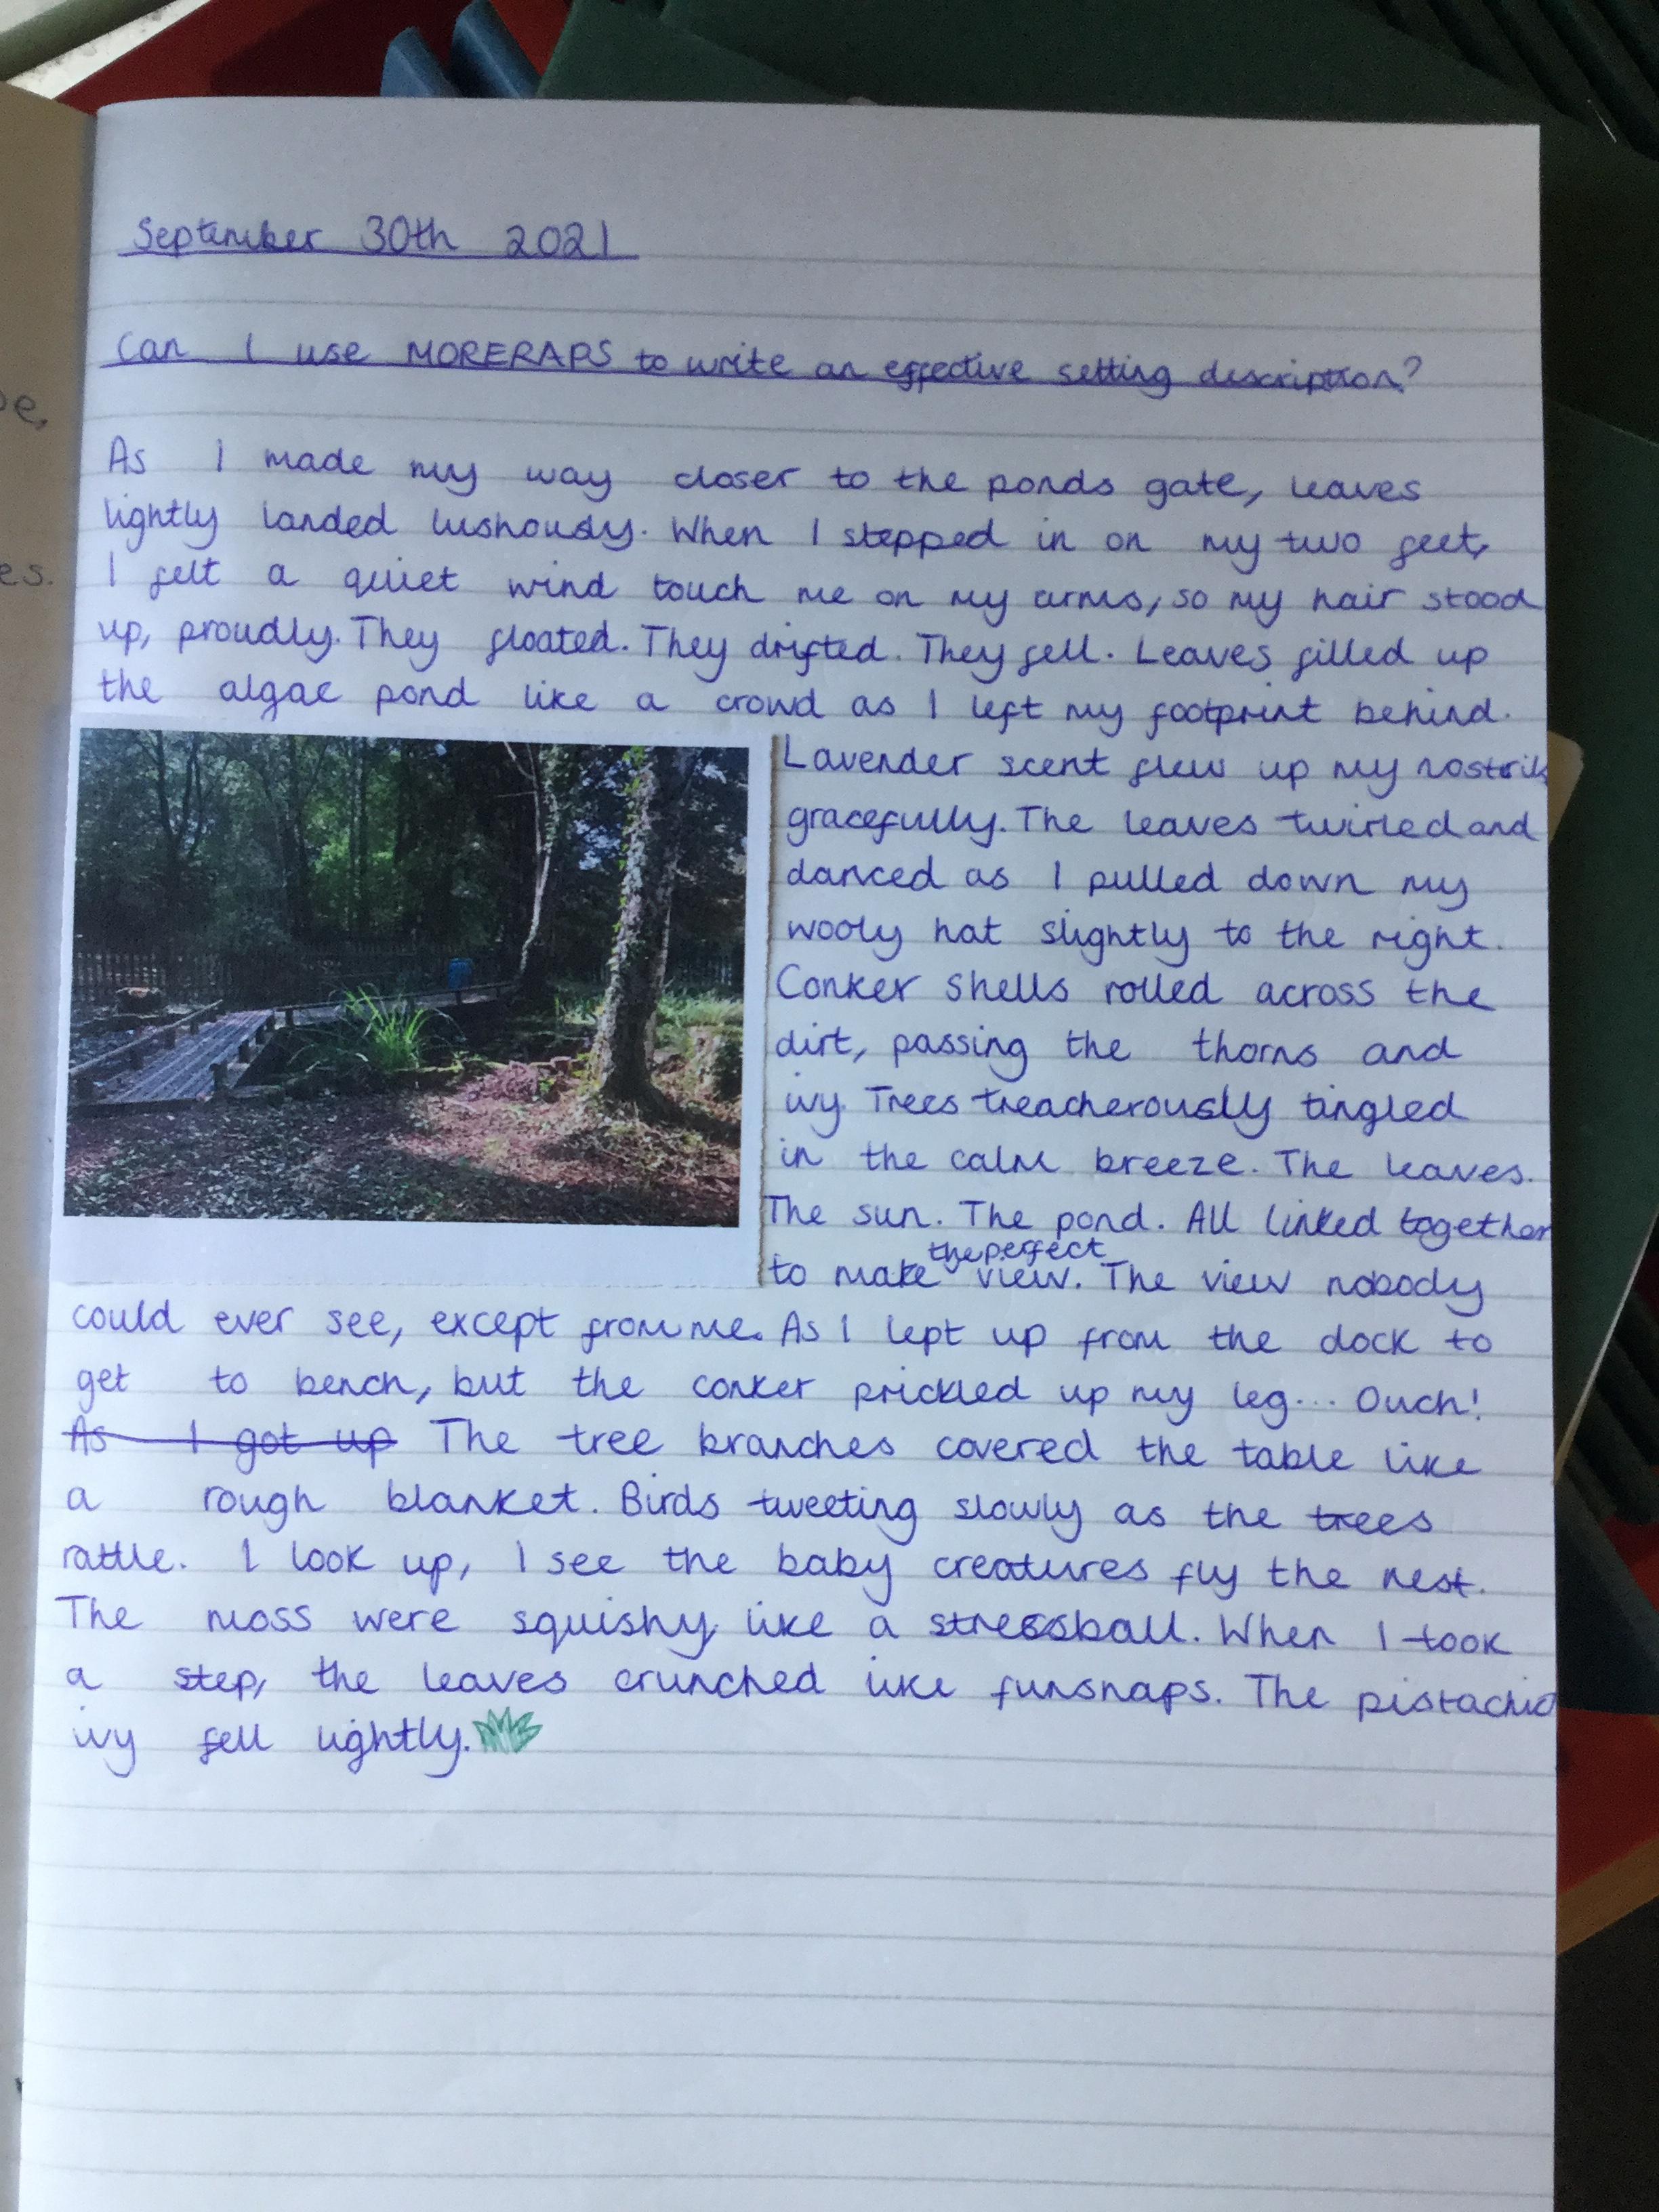 September 30th 2021
Can I use MORERAPS to write an effective setting description?
As I made my way closer to the ponds gate, leaves
lightly landed lushously. When I stepped in on my two feet,
I felt a quiet wind touch me on my arms, so my hair stood
up, proudly. They floated. They drifted. They fell. Leaves filled up
the algae pond like a crowd as I left my footprint behind.
Lavender scent flew up my nostrils
gracefully. The leaves twirled and
danced as I pulled down my
wooly hat slightly to the right.
Conker shells rolled across the
dirt, passing the thorns and
ivy. Trees treacherously tingled
in the calm breeze. The leaves.
The sun. The pond. All linked together
to make the perfect view. The view nobody
could ever see, except from me. As I lept up from the dock to
get to bench, but the conker prickled up my leg... Ouch!
As I got up The tree branches covered the table like
a rough blanket. Birds tweeting slowly as the trees
rattle. I look up, I see the baby creatures fly the nest.
The moss were squishy like a stressball. When I took
a step, the leaves crunched like funsnaps. The pistachio
ivy fell lightly.
e,
es.